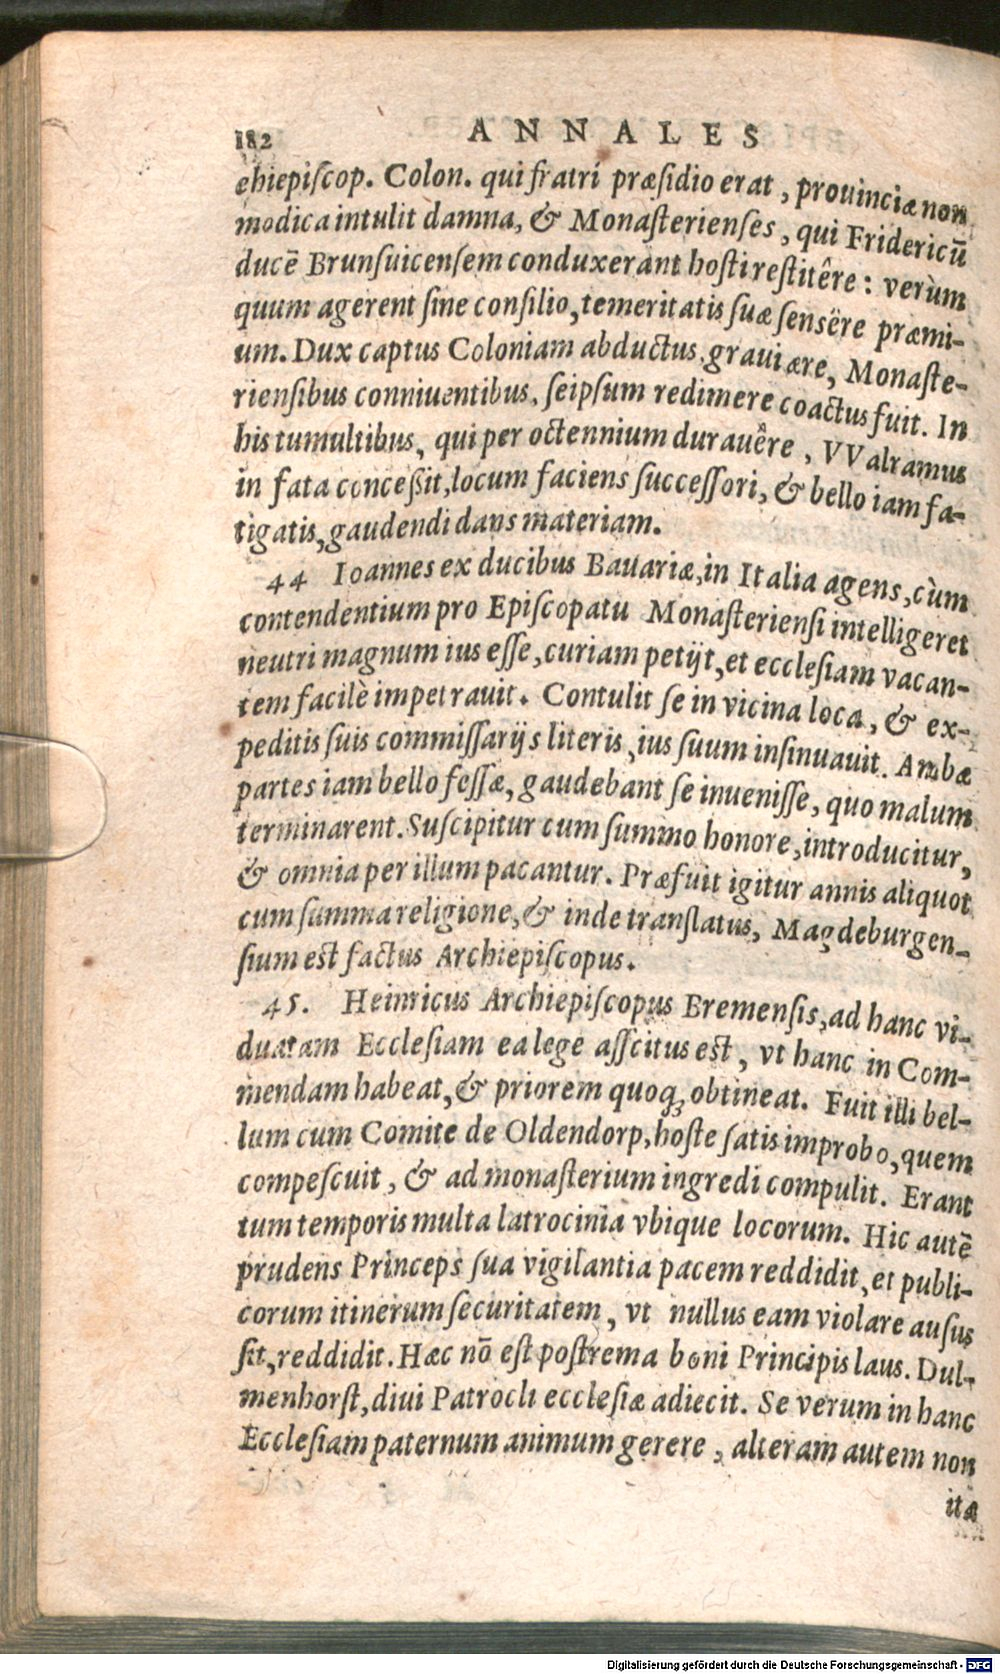 182 ANNALES
chiepiscop. Colon. qui fratri præsidio erat, prouinciæ non
modica intulit damna, & Monasterienses, qui Fridericū
ducē Brunsuicensem conduxerant hosti restitêre: verùm
quum agerent sine consilio, temeritatis suæ sensêre præmi-
um. Dux captus Coloniam abductus, graui ære, Monaste-
riensibus conniuentibus, seipsum redimere coactus fuit. In
his tumultibus, qui per octennium durauêre, VValramus
in fata conceßit, locum faciens successori, & bello iam fa-
tigatis, gaudendi dans materiam.
44 Ioannes ex ducibus Bauariæ, in Italia agens, cùm
contendentium pro Episcopatu Monasteriensi intelligeret
neutri magnum ius esse, curiam petijt, et ecclesiam vacan-
tem facilè impetrauit. Contulit se in vicina loca, & ex-
peditis suis commissarijs literis, ius suum insinuauit. Ambæ
partes iam bello fessæ, gaudebant se inuenisse, quo malum
terminarent. Suscipitur cum summo honore, introducitur,
& omnia per illum pacantur. Præfuit igitur annis aliquot
cum summa religione, & inde translatus, Magdeburgen-
sium est factus Archiepiscopus.
45. Heinricus Archiepiscopus Bremensis, ad hanc vi-
duatam Ecclesiam ea lege asscitus est, vt hanc in Com-
mendam habeat, & priorem quoq; obtineat. Fuit illi bel-
lum cum Comite de Oldendorp, hoste satis improbo, quem
compescuit, & ad monasterium ingredi compulit. Erant
tum temporis multa latrocinia vbique locorum. Hic autē
prudens Princeps sua vigilantia pacem reddidit, et publi-
corum itinerum securitatem, vt nullus eam violare ausus
sit, reddidit. Hæc nō est postrema boni Principis laus. Dul-
menhorst, diui Patrocli ecclesiæ adiecit. Se verum in hanc
Ecclesiam paternum animum gerere, alteram autem non
ita
Digitalisierung gefördert durch die Deutsche Forschungsgemeinschaft - DFG